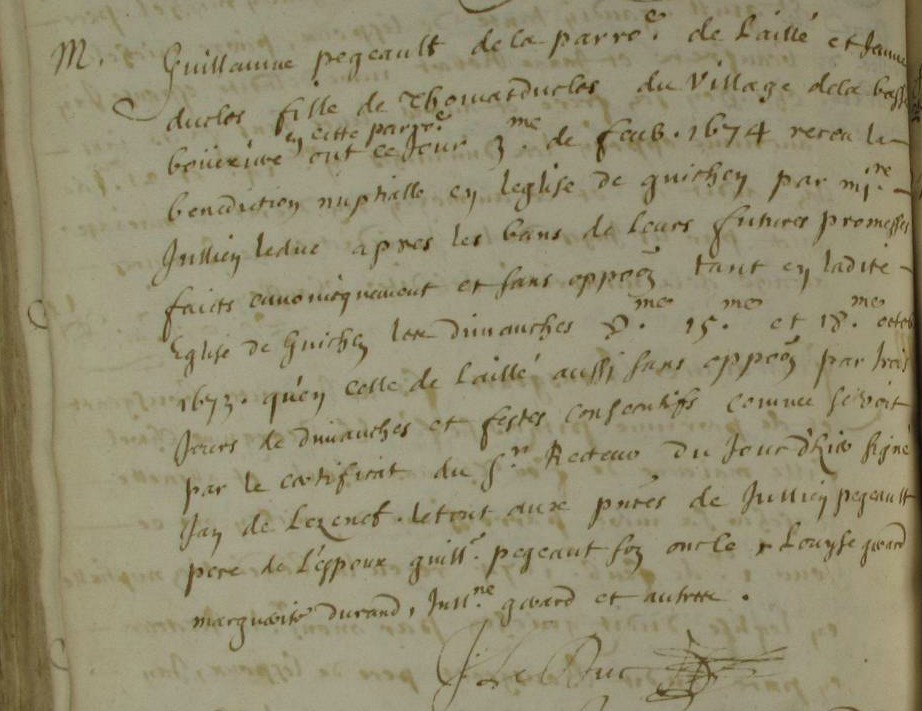 M. Guillaume pegeault de la parroe. de Laillé et Janne
duclos fille de Thomas duclos du Village dela basse
boüexiere en cette parroe. ont ce Jour 3me. de feub. 1674 receu la
benediction nuptialle en leglise de guichen par mire.
Jullien leduc apres les bans de leurs futures promesses
faicts canonicquement et sans oppoon tant en ladite
Eglise de Guichen les dimanches 8me. 15me. et 18me. octob
1673. qu'en celle de Laillé aussi sans oppoon par trois
Jours de dimanches et festes consecutifs comme se voit
par le certificat du Sr. Recteur du Jour d'hier signé
Jan de Lezenet. le tout aux pntes de Jullien pegeault
pere de L'espoux guille. pegeaut son oncle Louyse giard
margueritte durand, Jullne. giard et autres.
J Le Duc